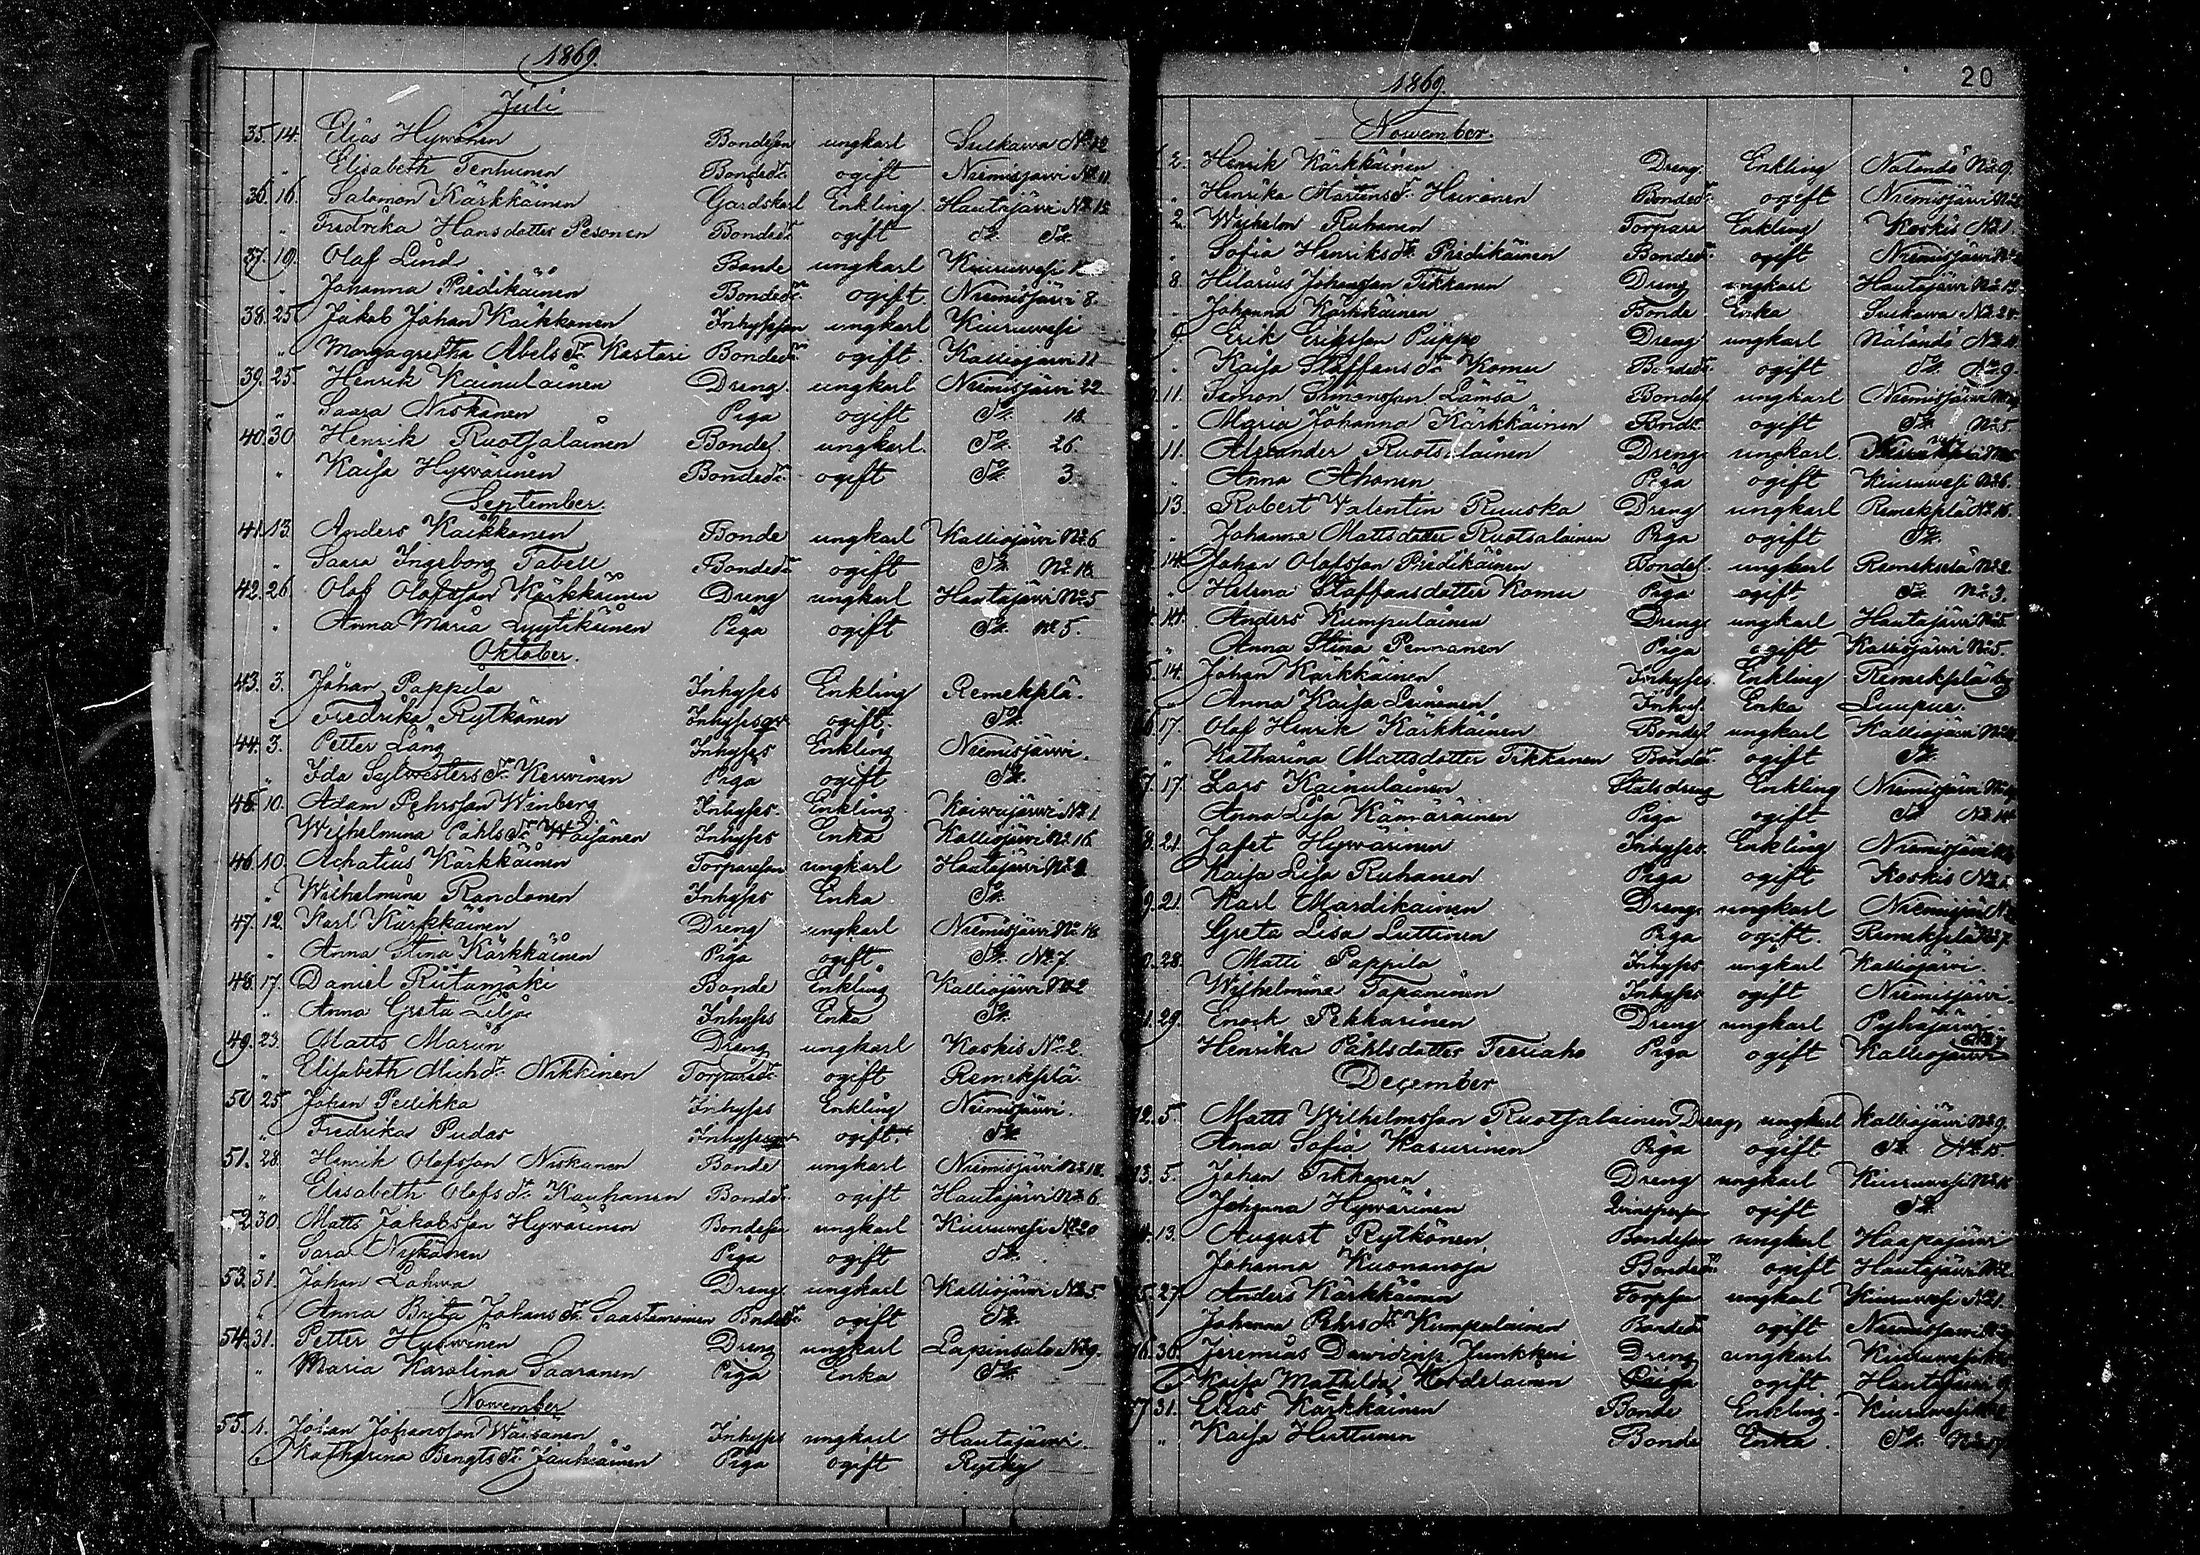 1869.
Juli
35. 14. Elias Hyvönen Bondeson ungkarl Sulkawa No 12
" Elisabeth Tenhunen Bonded:r ogift Niemisjärvi No 11.
36. 16. Salomon Kärkkäinen Gårdskarl Enkling Hautajärvi No 15
" Fredrika Hansdotter Pesonen Bonded:r ogift D:o D:o
37. 19. Olof Lind Bonde ungkarl Kiuruwesi
" Johanna Piedikäinen Bonded:r ogift. Niemisjärvi 8.
38. 25. Jakob Johan Kaikkonen Inhysson ungkarl Kiuruwesi
" Margagretha Abelsd:r Kastari Bonded:r ogift. Kalliojärvi 11
39. 25. Henrik Kainulainen Dreng. ungkarl Niemisjärvi 22
" Saara Niskanen Piga ogift D:o 18.
40. 30 Henrik Ruotsalainen Bondes. ungkarl. D:o 26
" Kaisa Hywärinen Bonded:r ogift D:o 3.
September.
41. 13. Anders Kaikkonen Bonde ungkarl Kalliojärvi No 6
" Saara Ingeborg Tabell Bonded:r ogift D:o No 18.
42. 26. Olof Olofsson Kärkkäinen Dreng ungkarl Hautajärvi No 5
" Anna Maria Lyytikäinen Piga ogift D:o No 5.
Oktober.
43. 3. Johan Pappila Inhyses Enkling Remekselä.
" Fredrika Rytkönen Inhyses ogift. D:o
44. 3. Petter Lång Inhyses Enkling Niemisjärvi.
" Ida Sylwestersd:r Kerwinen Piga ogift D:o
45. 10. Adam Pehrsson Winberg Inhyses. Enkling Koiwujärwi No 1
Wilhelmina Påhlsd:r Waisänen Inhyses Enka Kalliojärvi No 16
46. 10. Achatius Kärkkäinen Torpareson ungkarl Hautajärvi No
" Wilhelmina Rondonen Inhyses Enka D:o
47. 12. Karl Kärkkäinen Dreng ungkarl Niemisjärvi No 18
" Anna Stina Kärkkäinen Piga ogift D:o No 7
48. 17. Daniel Riitamäki Bonde Enkling Kalliojärvi No 2
" Anna Greta Lilja Inhyses Enka D:o
49. 23. Matts Marin Dreng ungkarl Koskis No 2.
" Elisabeth Michd:r Nikkinen Torpared:r ogift Remekselä.
50 25. Johan Pedikka Inhyses Enkling Niemisjärvi.
" Fredrika Pudas Inhyses ogift D:o
51. 28. Henrik Olofsson Niskanen Bonde ungkarl Niemisjärvi No 18
" Elisabeth Olofsd:r Kauhanen Bonded:r ogift Hautajärvi No 6
52. 30. Matts Jakobsson Hywärinen Bondeson ungkarl Kiuruwesi No 20
" Sara Nykänen Piga ogift D:o
53. 31. Johan Lahwa Dreng ungkarl Kalliojärvi No 5.
" Anna Brita Johansd:r Saastamoinen Bonded:r ogift D:o
54. 31. Petter Dreng ungkarl Lapinsalo No 9.
" Maria Karolina Saaranen Piga Enka D:o
November
55. 1. Johan Johansson Wäisänen Inhyses ungkarl Hautajärvi.
Katharina Bengtsd:r Jauhiainen Piga ogift Rytky
20
1869.
November.
2. Henrik Kärkkäinen Dreng. Enkling Nälöndö No 9.
" Henrika Mårtensd:r Huinonen Bonded:r ogift Niemisjärvi
2 Wilhelm Ruhanen Torpare Enkling Koskis No 1.
" Sofia Henriksd:r Piedikäinen Bonded:r ogift Niemisjärvi
8. Hilarius Johansson Tikkanen Dreng ungkarl Hautajärvi No 12
Johanna Kärkkäinen Bonde Enka Sulkawa No 20
9. Erik Eriksson Piippo Dreng ungkarl Nälöndö
" Kaisa Staffansd:r Komu Bonded:r ogift D:o No 9.
11. Simon Simonsson Lämsä Bondes. ungkarl Niemisjärvi
" Maria Johanna Kärkkäinen Bonded:r ogift D:o No 5.
11. Alexander Ruotsalainen Dreng ungkarl
" Anna Ahonen Piga ogift Kiuruwesi No 6.
13. Robert Valentin Ruuska Dreng ungkarl Remekselä No 16.
" Johanna Mattsdotter Ruotsalainen Piga ogift D:o
14. Johan Olofsson Piedikäinen Bondes. ungkarl Remekselä No 2.
" Helena Staffansdotter Komu Piga ogift D:o No 3.
14. Anders Kumpulainen Dreng ungkarl Hautajärvi No 5.
" Anna Stina Pennanen Piga ogift Kalliojärvi No 5.
14. Johan Kärkkäinen Inhyses Enkling Remekselä by
Anna Kaisa Leinonen Inhys. Enka Luupuw.
17. Olof Henrik Kärkkäinen Bondes ungkarl Kalliojärvi
" Katharina Mattsdotter Tikkanen Bonded:r ogift D:o
17. Lars Kainulainen Statsdreng Enkling Niemisjärvi
Anna Lisa Kämäräinen Piga ogift D:o No 14
21. Jafet Hywärinen Inhyses Enkling Niemisjärvi
Kaisa Lisa Ruhanen Piga ogift Koskis
21. Karl Mardikainen Dreng ungkarl Niemisjär
Greta Lisa Luttinen Piga ogift. Remekselä No 7.
28. Matti Pappila Inhyses ungkarl Kalliojärvi.
Wilhelmina Tapaninen Inhyses ogift Niemisjärvi.
29. Enok Pekkarinen Dreng ungkarl Pyhäjärvi
Henrika Påhlsdotter Teeriaho Piga ogift Kalliojärvi
December
72. 5. Matts Wilhelmsson Ruotsalainen Dreng ungkarl Kalliojärvi No 9.
Anna Sofia Kasurinen Piga ogift D:o No 15.
73. 5. Johan Tikkanen Dreng ungkarl Kiuruwesi No 16
Johanna Hywärinen ogift D:o
13. August Rytkönen Bondeson ungkarl Haapajärvi
Johanna Kuonanoja Bonded:r ogift Hautajärvi No 2
27. Anders Kärkkäinen Torpson ungkarl Kiuruwesi No 21.
Johanna Pehrsd:r Kumpulainen Bonded:r ogift Niemisjärvi
76. 30. Jeremias Dawidsson Junkkari Dreng ungkarl Kiuruwesi
Kaisa Mathilda Piga ogift Hautajärvi 9
77 31. Elias Kärkkäinen Bonde Enkling. Kiuruwesi
" Kaisa Huttunen Bonde Enka. D:o